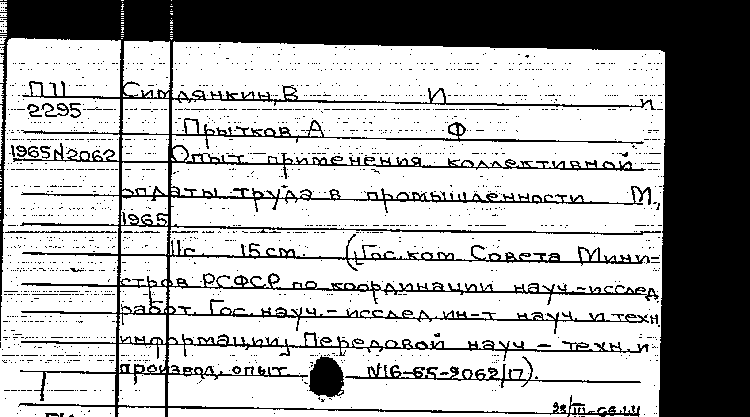 П11 Симдянкин, В И и
2295
Прытков, А Ф
1965N2062 Опыт применения коллективной
оплаты труда в промышленности. М.,
1965.
11с. 15см. (Гос. ком. Совета Мини-
стров РСФСР по координации науч.-исслед
работ. Гос. науч.-исслед. ин-т науч. и техн
информации. Передовой науч-техн. и
производ. опыт N16-65-2062/17).